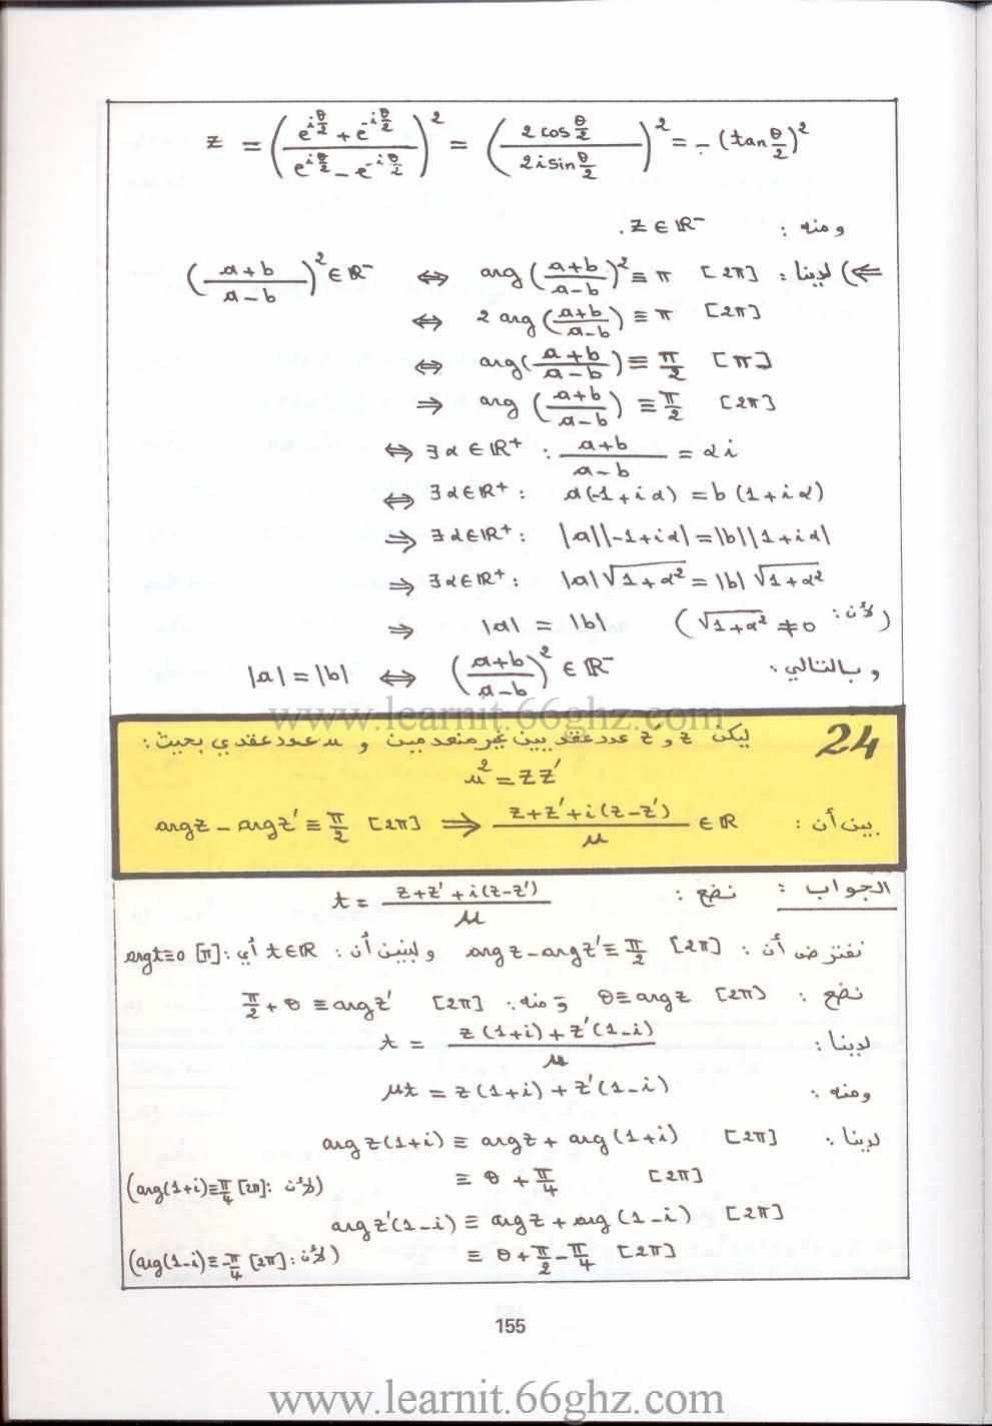 z = ( (e^{iθ/2} + e^{-iθ/2}) / (e^{iθ/2} - e^{-iθ/2}) )^2 = ( (2 cos θ/2) / (2 i sin θ/2) )^2 = - (tan θ/2)^2
ومنه : z ∈ ℝ⁻ .
⇐) لدينا : arg ((a+b)/(a-b))^2 ≡ π [2π] ⇔ ((a+b)/(a-b))^2 ∈ ℝ⁻
⇔ 2 arg ((a+b)/(a-b)) ≡ π [2π]
⇔ arg ((a+b)/(a-b)) ≡ π/2 [π]
⇒ arg ((a+b)/(a-b)) ≡ π/2 [2π]
⇔ ∃ α ∈ ℝ⁺ : (a+b)/(a-b) = α i
⇔ ∃ α ∈ ℝ⁺ : a(-1+iα) = b(1+iα)
⇒ ∃ α ∈ ℝ⁺ : |a||-1+iα| = |b||1+iα|
⇒ ∃ α ∈ ℝ⁺ : |a|√(1+α²) = |b|√(1+α²)
⇒ |a| = |b| (√(1+α²) ≠ 0 : لأن)
وبالتالي : |a| = |b| ⇔ ((a+b)/(a-b))^2 ∈ ℝ⁻
www.learnit.66ghz.com
24 ليكن z و z' عددين عقديين غير منعدمين و u عدد عقدي بحيث :
u² = zz'
بين أن : arg z - arg z' ≡ π/2 [2π] ⇒ (z+z'+i(z-z'))/u ∈ ℝ
الجواب : نضع : t = (z+z'+i(z-z'))/u
نفترض أن : arg z - arg z' ≡ π/2 [2π] ولنبين أن : t ∈ ℝ أي : arg t ≡ 0 [π]
نضع : θ ≡ arg z [2π] ومنه : π/2 + θ ≡ arg z' [2π]
لدينا : t = (z(1+i) + z'(1-i))/u
ومنه : ut = z(1+i) + z'(1-i)
لدينا : arg z(1+i) ≡ arg z + arg(1+i) [2π]
≡ θ + π/4 [2π] (arg(1+i) ≡ π/4 [2π] : لأن)
arg z'(1-i) ≡ arg z + arg(1-i) [2π]
≡ θ + π/2 - π/4 [2π] (arg(1-i) ≡ -π/4 [2π] : لأن)
155
www.learnit.66ghz.com